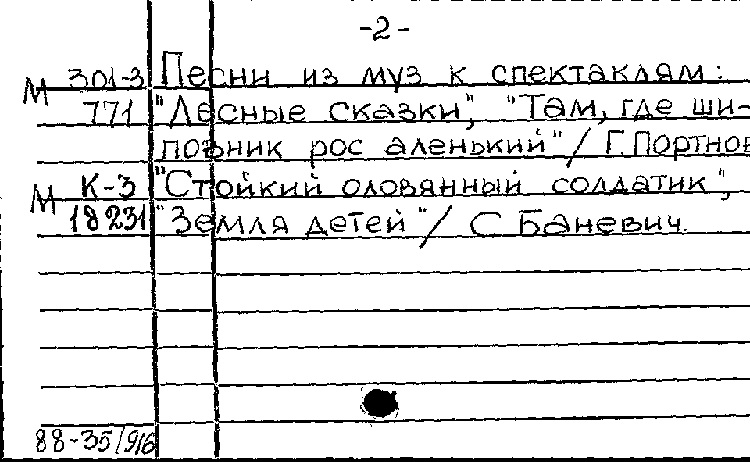 -2-
М 301-3 Песни из муз к спектаклям:
771 "Лесные сказки", "Там, где ши-
повник рос аленький"/ Г.Портнов
М К-3 "Стойкий оловянный солдатик",
18231 "Земля детей"/ С Баневич.
88-35/916